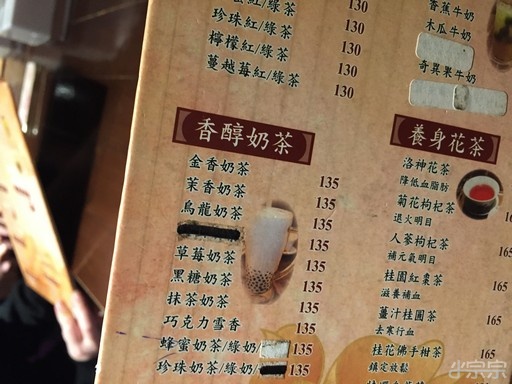 紅/綠茶
珍珠紅/綠茶 130
檸檬紅/綠茶 130
蔓越莓紅/綠茶 130
130
香醇奶茶
金香奶茶 135
茉香奶茶 135
烏龍奶茶 135
135
草莓奶茶 135
黑糖奶茶 135
抹茶奶茶 135
巧克力雪香
蜂蜜奶茶/綠奶 135
珍珠奶茶/綠奶 135
香蕉牛奶
木瓜牛奶
奇異果牛奶
養身花茶
洛神花茶
降低血脂肪
菊花枸杞茶
退火明目
人蔘枸杞茶
補元氣明目
桂圓紅棗茶
滋養補血
薑汁桂圓茶 165
去寒行血
桂花佛手柑茶 165
鎮定放鬆
小宗宗